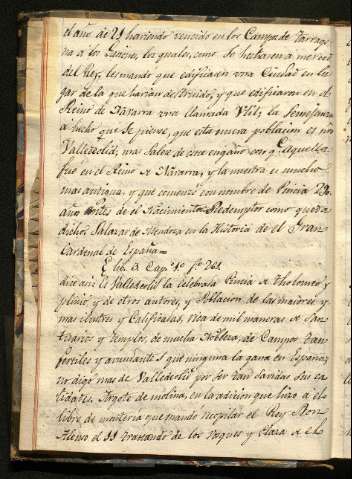 el año de 29 haviendo vencido en los Campos de Tarrago
na a los Quinios, los quales, como se hechasen a merced
del Rey, les mando que edificasen una Ciudad en lu
gar de la que havian destruido, y que edificaron en el
Reino de Navarra una llamada Util; la semejanza
a hecho que se piense, que esta nueva poblacion es
Valledolid; mas salese de este engaño con q. aquella
fue en el Reino de Navarra, y la nuestra es mucho
mas antigua, y que comenzó con nombre de Pincia 29
años antes de el Nacimiento Redemptor como queda
dicho; Salazar de Mendoza en la Historia de el Gran
Cardenal de España =
Lib. 2 Cap. 1º fº 261
dice asi: Es Valledolid la celebrada Pincia de Tholomeo y
plinio, y de otros autores, y Poblacion de las maiores y
mas ilustres y Calificadas, rica de mil maneras de San
tuarios y templos, de mucha Nobleza, de Campos tan
fertiles y avundantes que ninguna la gana en España;
no digo mas de Valledolid por ser tan savidas sus ca
lidades. Argote de molina, en la adicion que hizo a el
libro de monteria que mando recopilar el Rey Don
Alonso el 11 tratando de los Bosques y Plaza de el